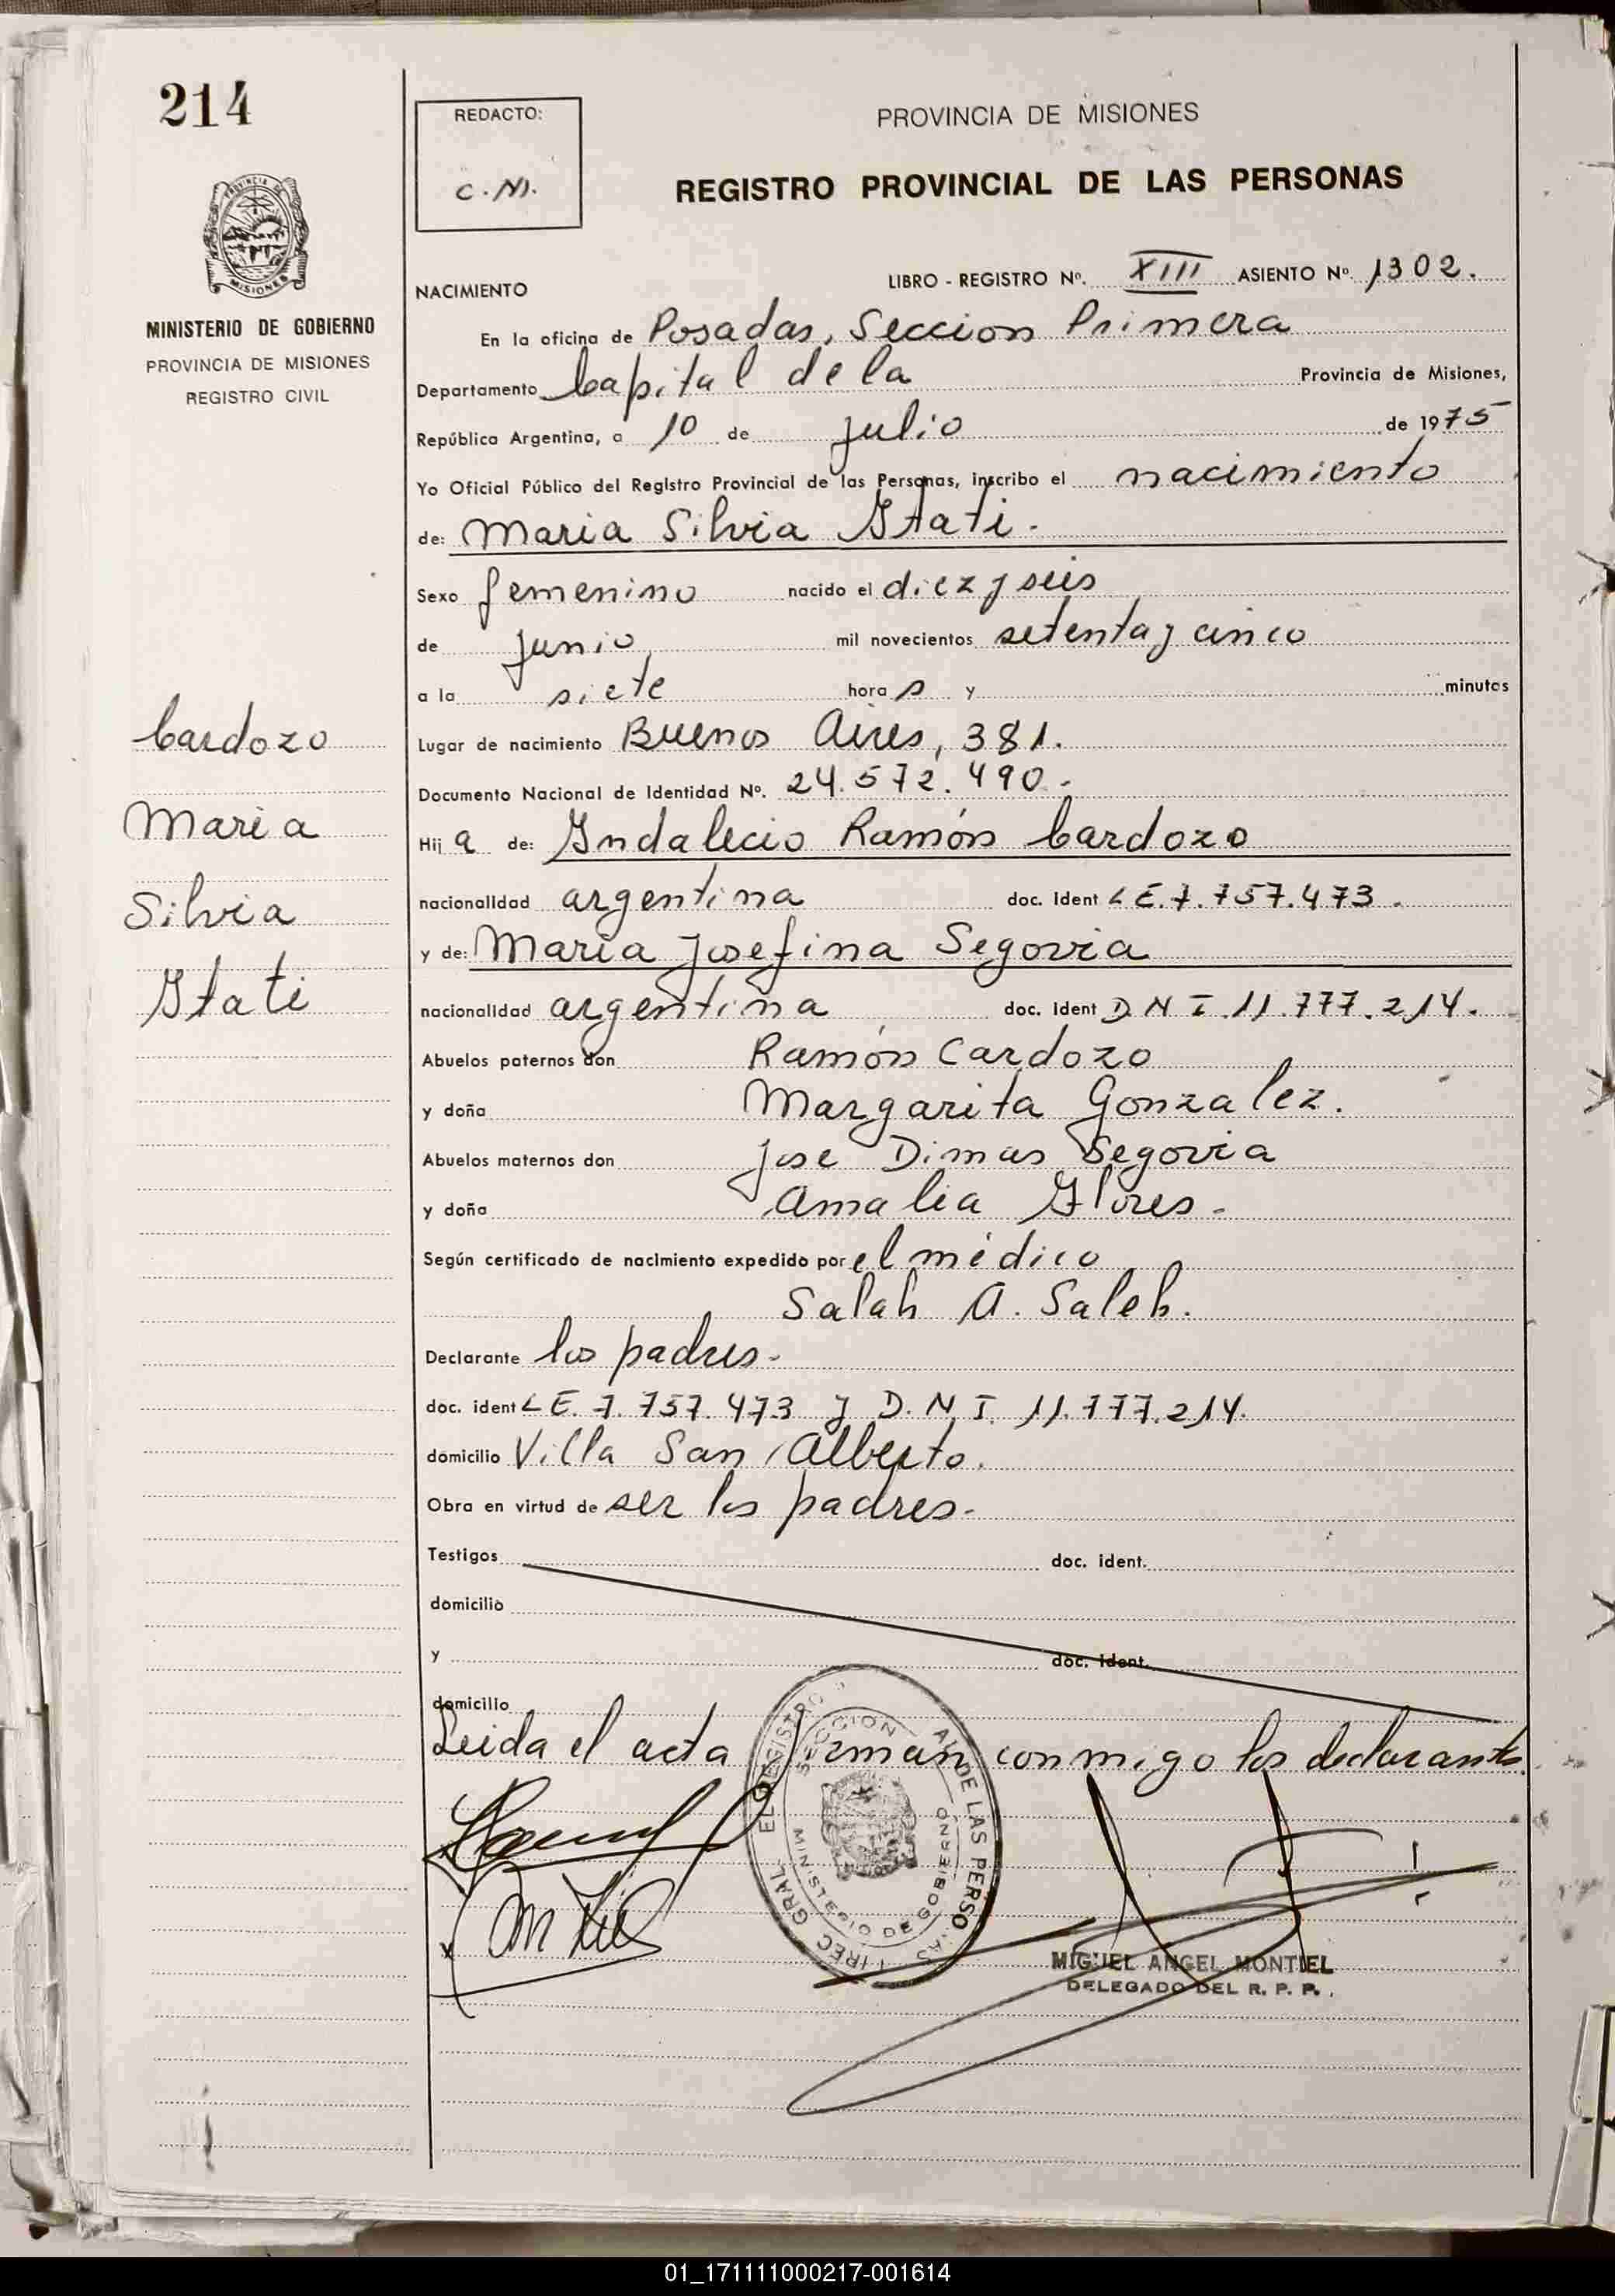 214
REDACTO:
C.N.
PROVINCIA DE MISIONES
REGISTRO PROVINCIAL DE LAS PERSONAS
MINISTERIO DE GOBIERNO
PROVINCIA DE MISIONES
REGISTRO CIVIL
LIBRO - REGISTRO Nº. XIII ASIENTO Nº. 1302.
NACIMIENTO
En la oficina de Posadas, Seccion Primera
Departamento Capital de la Provincia de Misiones,
República Argentina, a 10 de julio de 1975
Yo Oficial Público del Registro Provincial de las Personas, inscribo el nacimiento
de: Maria Silvia Itati.
Sexo femenino nacido el diez y seis
de junio mil novecientos setenta y cinco
a la siete hora s y minutos
Cardozo
Maria
Silvia
Itati
Lugar de nacimiento Buenos Aires, 381.
Documento Nacional de Identidad Nº. 24.572.490.
Hij a de: Indalecio Ramón Cardozo
nacionalidad argentina doc. Ident L E. 7.757.473.
y de: Maria Josefina Segovia
nacionalidad argentina doc. Ident D N I. 11.777.214.
Abuelos paternos don Ramón Cardozo
y doña Margarita Gonzalez.
Abuelos maternos don Jose Dimas Segovia
y doña Amalia Flores.
Según certificado de nacimiento expedido por el médico
Salah A. Saleh.
Declarante los padres.
doc. ident L E. 7.757.473 y D. N I. 11.777.214.
domicilio Villa San Alberto.
Obra en virtud de ser los padres.
Testigos doc. ident.
domicilio
y doc. ident.
domicilio
Leida el acta firman conmigo los declarantes.
SECCION
MINISTERIO DE GOBIERNO
MIGUEL ANGEL MONTIEL
DELEGADO DEL R. P. P.
01_171111000217-001614